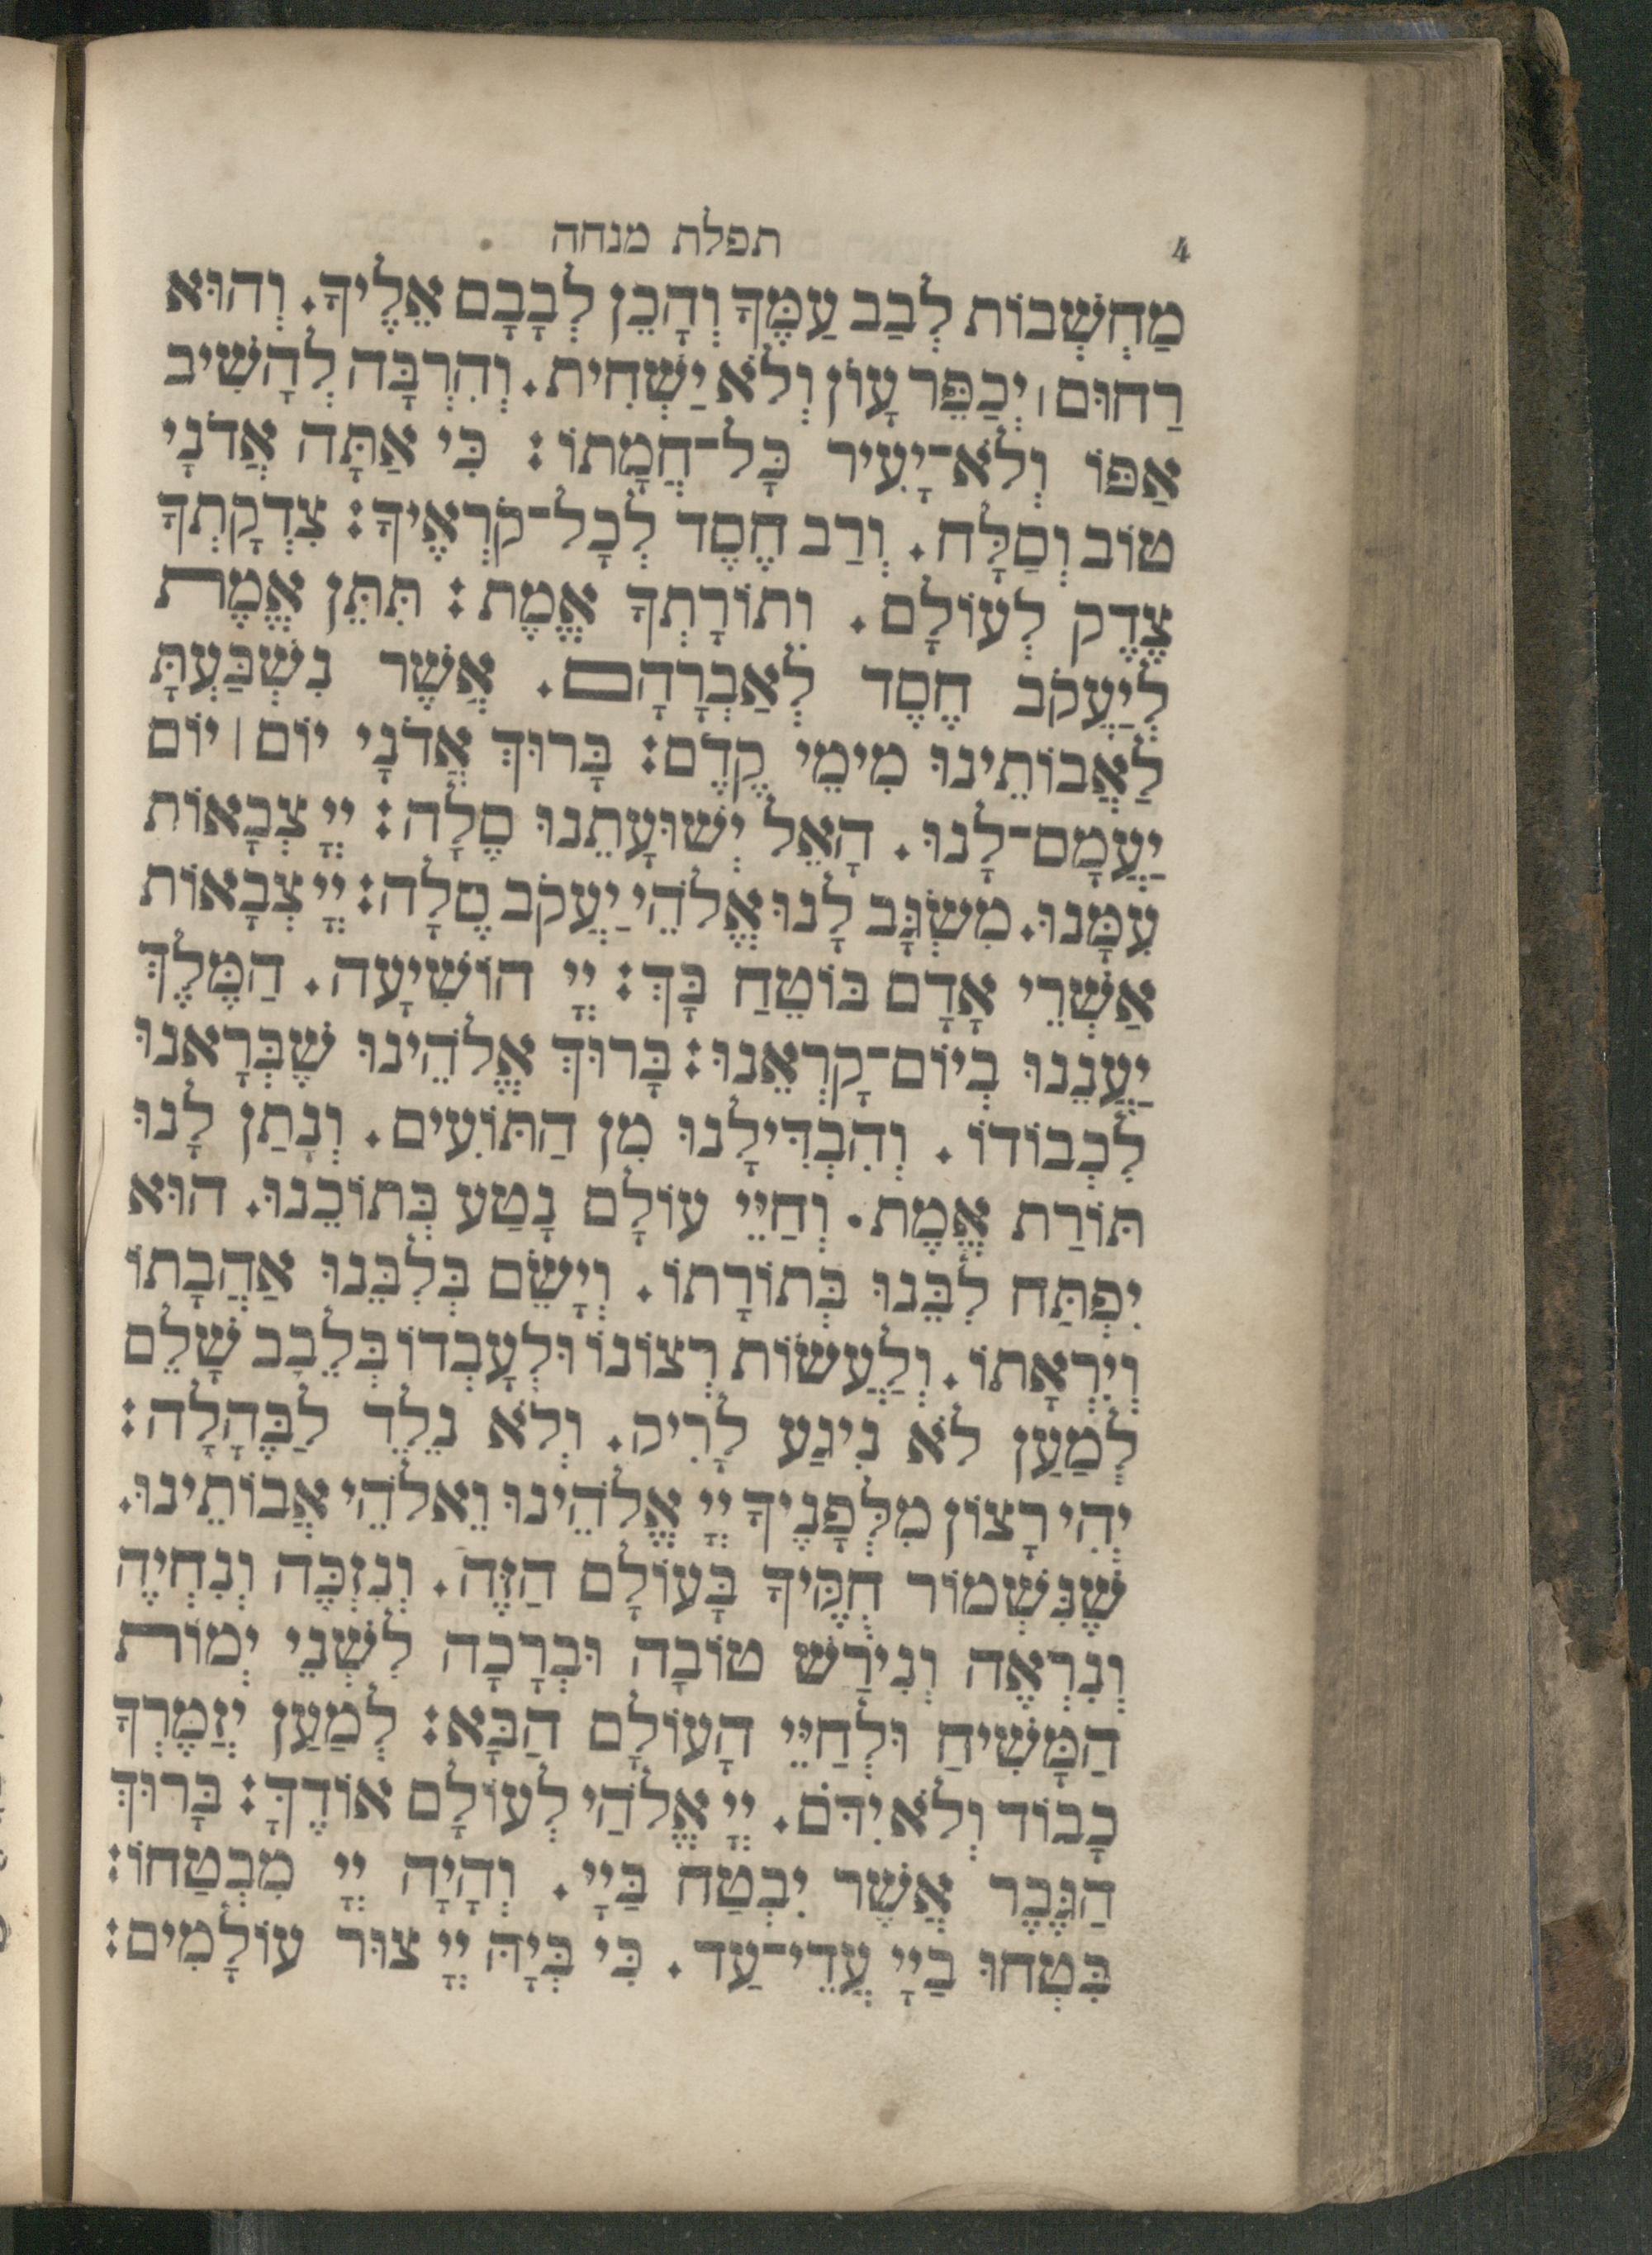 4 תפלת מנחה
מַחְשְׁבוֹת לְבַב עַמֶּךָ וְהָכֵן לְבָבָם אֵלֶיךָ. וְהוּא
רַחוּם ׀ יְכַפֵּר עָוֹן וְלֹא יַשְׁחִית. וְהִרְבָּה לְהָשִׁיב
אַפּוֹ וְלֹא־יָעִיר כָּל־חֲמָתוֹ: כִּי אַתָּה אֲדֹנָי
טוֹב וְסַלָּח. וְרַב חֶסֶד לְכָל־קֹרְאֶיךָ: צִדְקָתְךָ
צֶדֶק לְעוֹלָם. וְתוֹרָתְךָ אֱמֶת: תִּתֵּן אֱמֶת
לְיַעֲקֹב חֶסֶד לְאַבְרָהָם. אֲשֶׁר נִשְׁבַּעְתָּ
לַאֲבוֹתֵינוּ מִימֵי קֶדֶם: בָּרוּךְ אֲדֹנָי יוֹם ׀ יוֹם
יַעֲמָס־לָנוּ. הָאֵל יְשׁוּעָתֵנוּ סֶלָה: יְיָ צְבָאוֹת
עִמָּנוּ. מִשְׂגָּב לָנוּ אֱלֹהֵי יַעֲקֹב סֶלָה: יְיָ צְבָאוֹת
אַשְׁרֵי אָדָם בּוֹטֵחַ בָּךְ: יְיָ הוֹשִׁיעָה. הַמֶּלֶךְ
יַעֲנֵנוּ בְיוֹם־קָרְאֵנוּ: בָּרוּךְ אֱלֹהֵינוּ שֶׁבְּרָאנוּ
לִכְבוֹדוֹ. וְהִבְדִּילָנוּ מִן הַתּוֹעִים. וְנָתַן לָנוּ
תּוֹרַת אֱמֶת. וְחַיֵּי עוֹלָם נָטַע בְּתוֹכֵנוּ. הוּא
יִפְתַּח לִבֵּנוּ בְּתוֹרָתוֹ. וְיָשֵׂם בְּלִבֵּנוּ אַהֲבָתוֹ
וְיִרְאָתוֹ. וְלַעֲשׂוֹת רְצוֹנוֹ וּלְעָבְדוֹ בְּלֵבָב שָׁלֵם
לְמַעַן לֹא נִיגַע לָרִיק. וְלֹא נֵלֵד לַבֶּהָלָה:
יְהִי רָצוֹן מִלְּפָנֶיךָ יְיָ אֱלֹהֵינוּ וֵאלֹהֵי אֲבוֹתֵינוּ.
שֶׁנִּשְׁמוֹר חֻקֶּיךָ בָּעוֹלָם הַזֶּה. וְנִזְכֶּה וְנִחְיֶה
וְנִרְאֶה וְנִירַשׁ טוֹבָה וּבְרָכָה לִשְׁנֵי יְמוֹת
הַמָּשִׁיחַ וּלְחַיֵּי הָעוֹלָם הַבָּא: לְמַעַן יְזַמֶּרְךָ
כָבוֹד וְלֹא יִדֹּם. יְיָ אֱלֹהַי לְעוֹלָם אוֹדֶךָּ: בָּרוּךְ
הַגֶּבֶר אֲשֶׁר יִבְטַח בַּיְיָ. וְהָיָה יְיָ מִבְטַחוֹ:
בִּטְחוּ בַיְיָ עֲדֵי־עַד. כִּי בְּיָהּ יְיָ צוּר עוֹלָמִים: